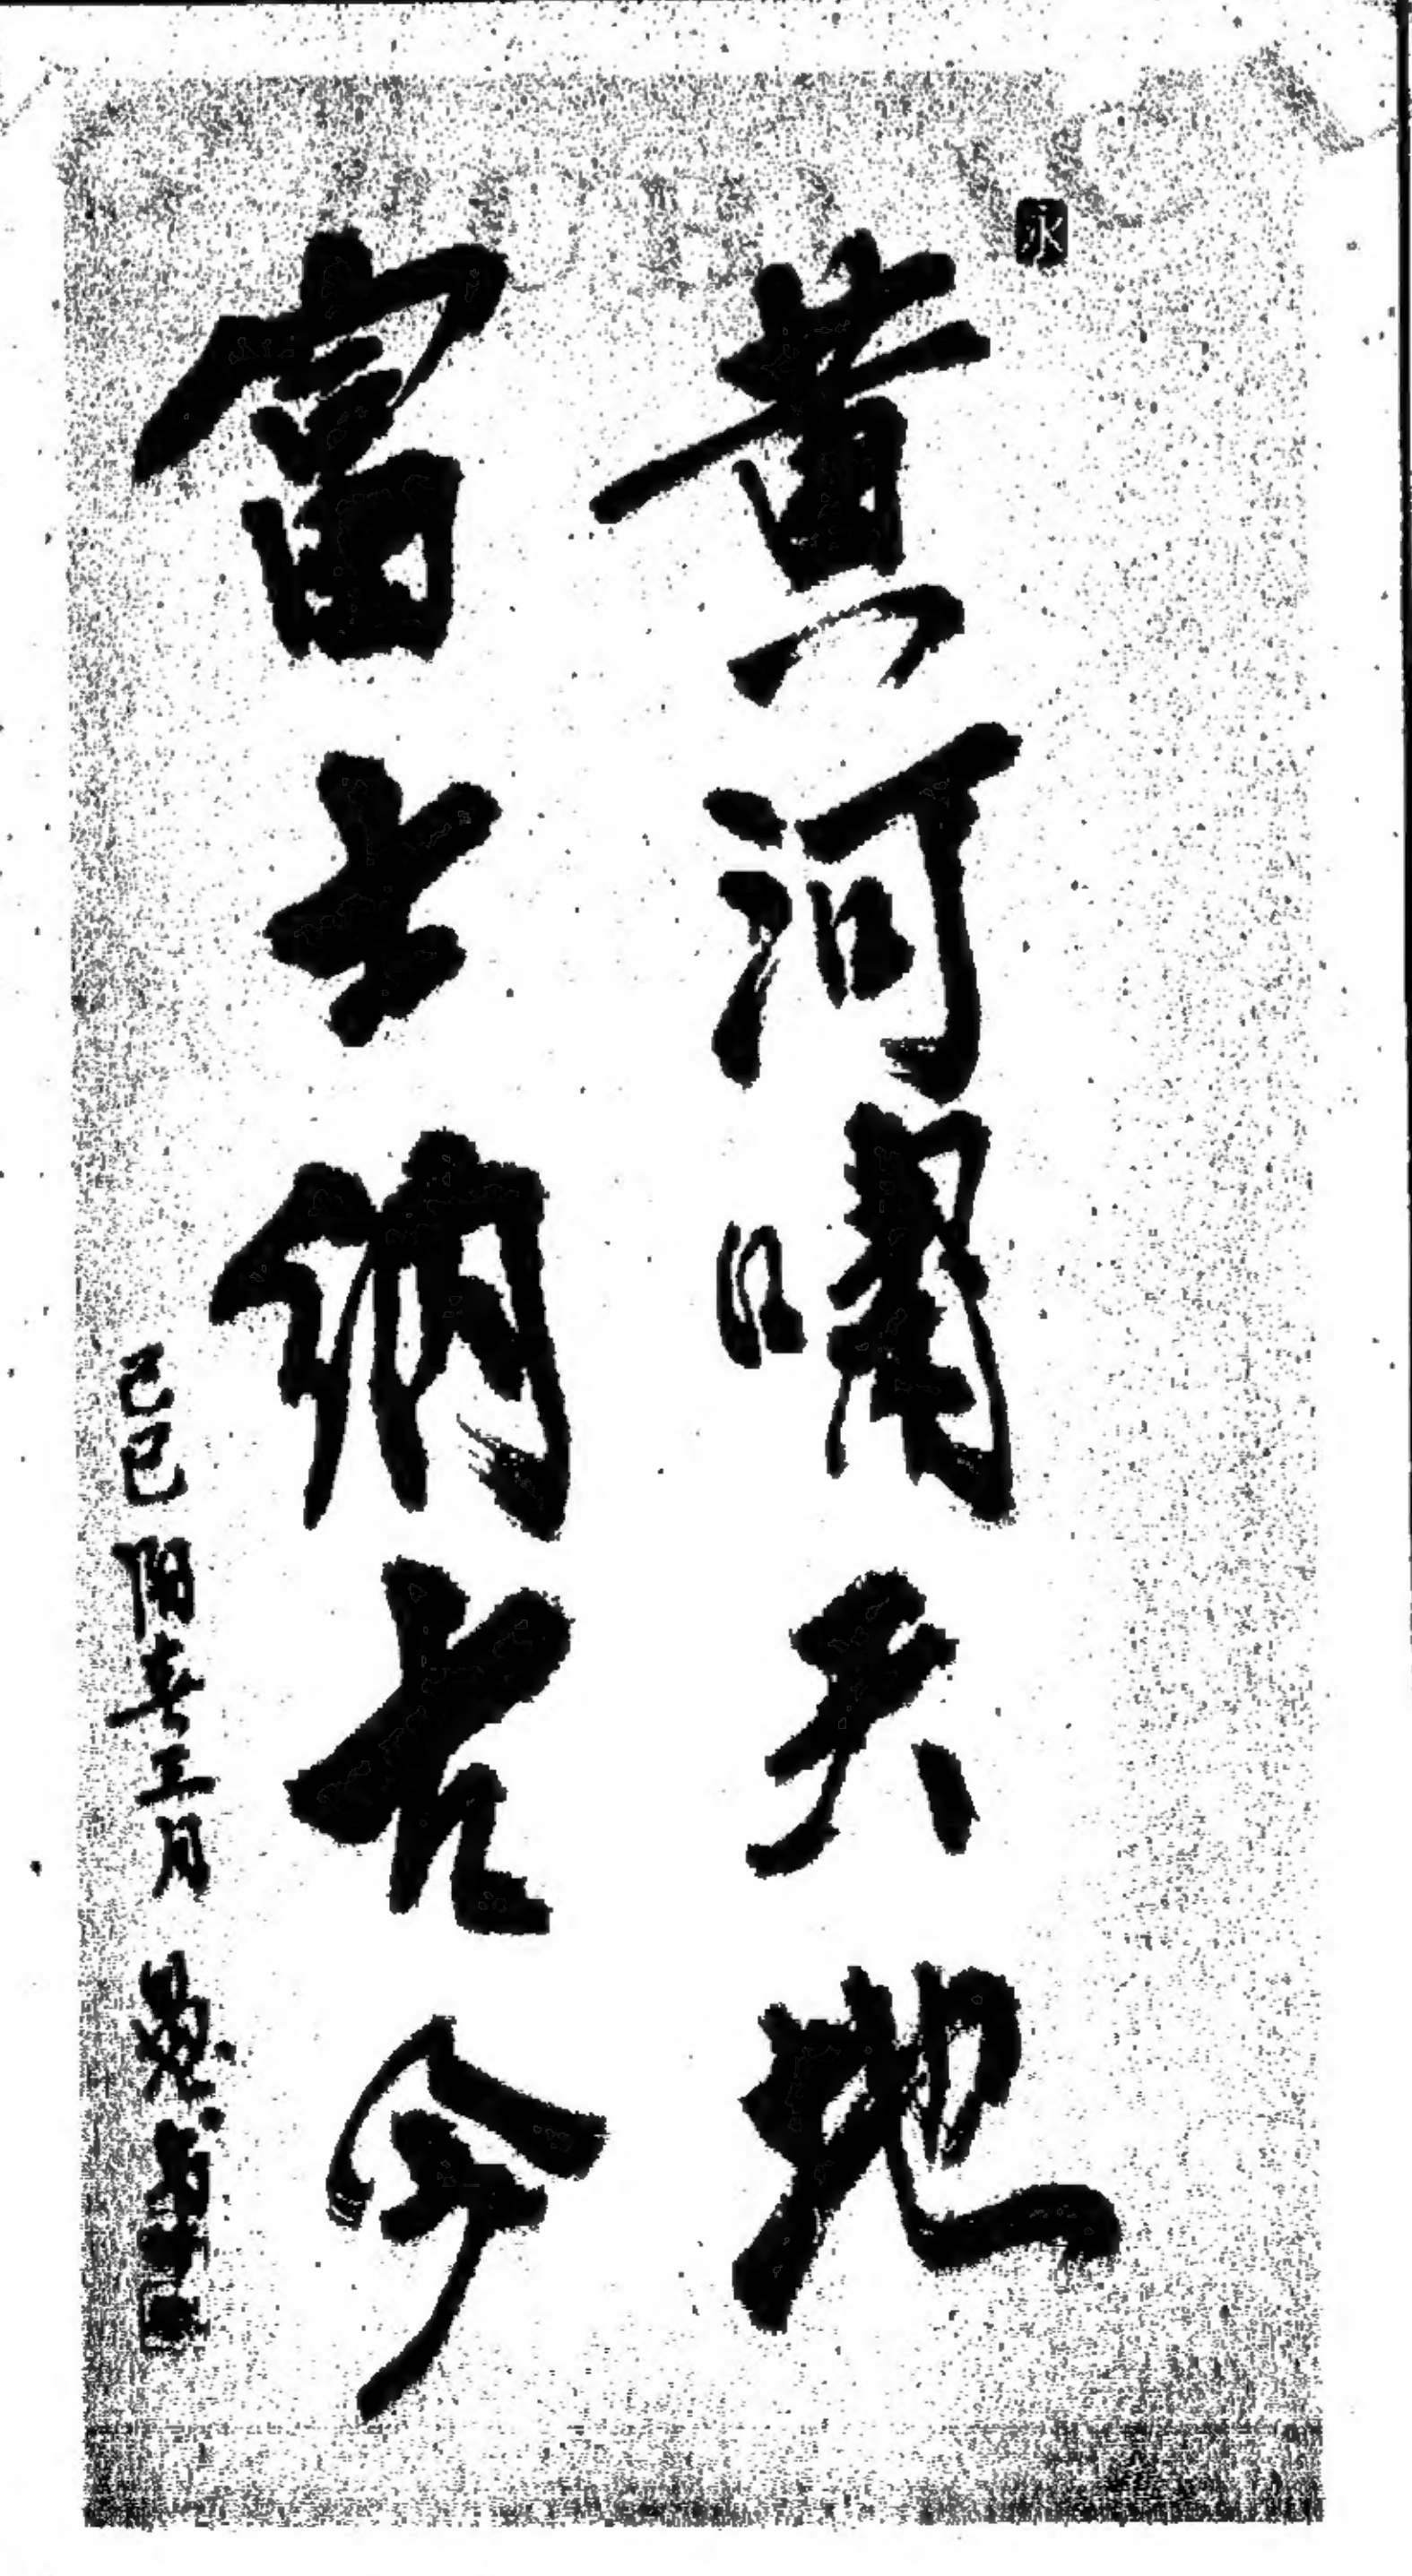 永
黄河啸天地
富士纳古今
己巳阳春三月